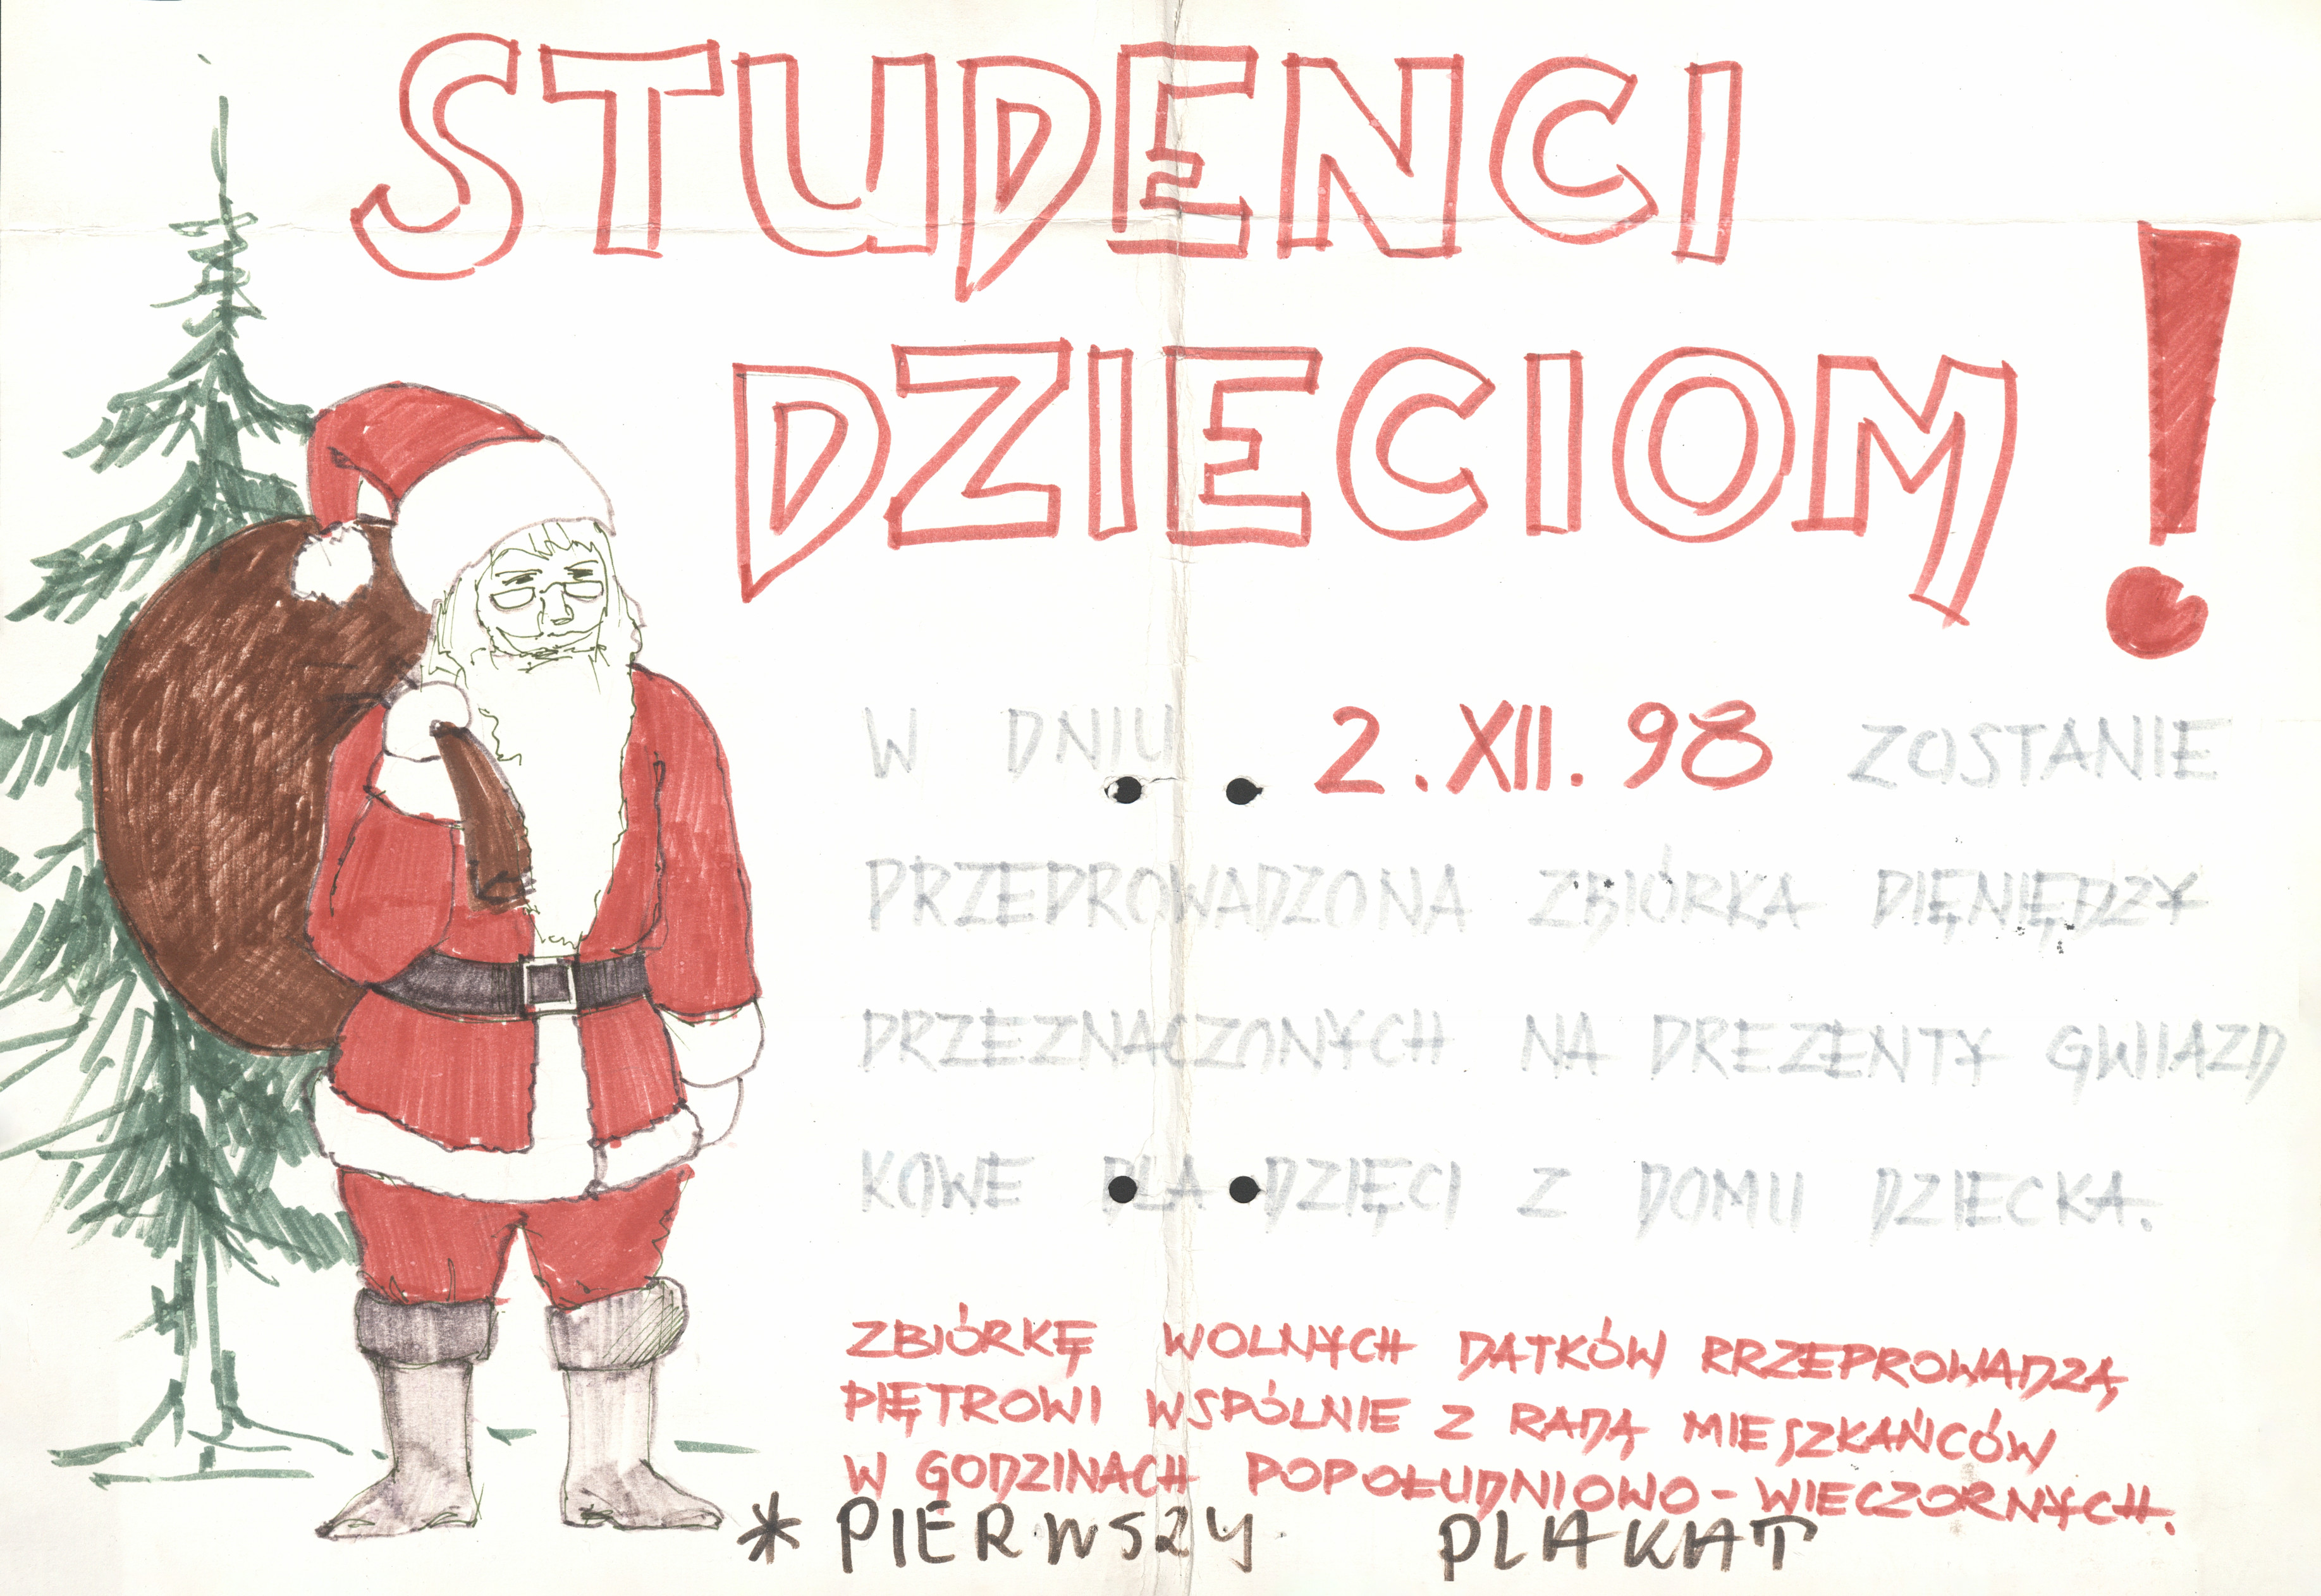 STUDENCI
DZIECIOM!
W DNIU 2.XII.98 ZOSTANIE
PRZEPROWADZONA ZBIÓRKA PIĘNIĘDZY
PRZEZNACZONYCH NA PREZENTY GWIAZD
KOWE DLA DZIĘCI Z DOMU DZIECKA.
ZBIÓRKĘ WOLNYCH DATKÓW RRZEPROWADZĄ
PIĘTROWI WSPÓLNIE Z RADĄ MIESZKAŃCÓW
W GODZINACH POPOŁUDNIOWO-WIECZORNYCH.
* PIERWSZY PLAKAT